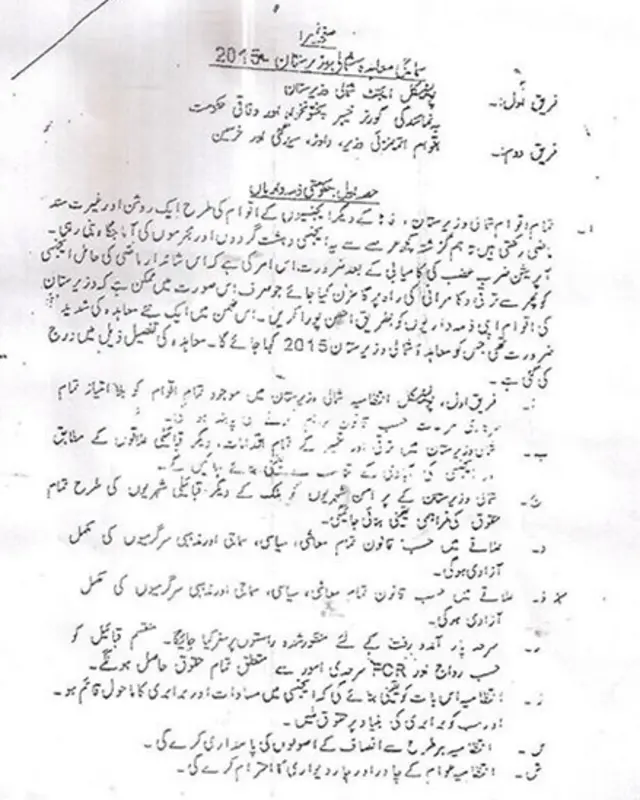 صفحہ نمبر 1
سماجی معاہدہ شمالی وزیرستان 2015
فریق اول:۔ پولیٹیکل ایجنٹ شمالی وزیرستان
بہ نمائندگی گورنر خیبر پختونخوا اور وفاقی حکومت
فریق دوم:۔ اقوام اتمانزئی وزیر، داوڑ، سیدگئی اور خرسین
حصہ اول: حکومتی ذمہ داریاں
تمام اقوام شمالی وزیرستان، فاٹا کے دیگر ایجنسیوں کے اقوام کی طرح ایک روشن اور غیرت مند
ماضی رکھتی ہیں تاہم گزشتہ کچھ عرصے سے یہ ایجنسی دہشت گردوں اور مجرموں کی آماجگاہ بنی رہی۔
آپریشن ضرب عضب کی کامیابی کے بعد ضرورت اس امر کی ہے کہ اس شاندار ماضی کی حامل ایجنسی
کو پھر سے ترقی و کامرانی کی راہ پر گامزن کیا جائے جو صرف اس صورت میں ممکن ہے کہ وزیرستان
کی اقوام اپنی ذمہ داریوں کو بطریق احسن پورا کریں۔ اس ضمن میں ایک نئے معاہدہ کی شدید
ضرورت تھی جس کو معاہدہ شمالی وزیرستان 2015 کہا جائے گا۔ معاہدہ کی تفصیل ذیل میں درج
کی گئی ہے۔
ا۔ فریق اول، پولیٹیکل انتظامیہ شمالی وزیرستان میں موجود تمام اقوام کو بلا امتیاز تمام
حسب قانون
ب۔ شمالی وزیرستان میں ترقی اور تعمیر کے تمام اقدامات، دیگر قبائلی علاقوں کے مطابق
اور ایجنسی کی آبادی کے تناسب سے یقینی بنائے جائیں گے۔
ج۔ شمالی وزیرستان کے پر امن شہریوں کو ملک کے دیگر قبائلی شہریوں کی طرح تمام
حقوق کی فراہمی یقینی بنائی جائیگی۔
د۔ علاقے میں حسب قانون تمام معاشی، سیاسی، سماجی اور مذہبی سرگرمیوں کی مکمل
آزادی ہوگی۔
ذ۔ علاقے میں حسب قانون تمام معاشی، سیاسی، سماجی اور مذہبی سرگرمیوں کی مکمل
آزادی ہوگی۔
ر۔ سرحد پار آمد و رفت کے لئے منظور شدہ راستوں پر سفر کیا جائیگا۔ منقسم قبائیل کو
حسب رواج اور FCR سرحدی امور سے متعلق تمام حقوق حاصل ہونگے۔
ز۔ انتظامیہ اس بات کو یقینی بنائے گی کہ ایجنسی میں مساوات اور برابری کا ماحول قائم ہو۔
اور سب کو برابری کی بنیاد پر حقوق ملیں۔
س۔ انتظامیہ ہر طرح سے انصاف کے اصولوں کی پاسداری کرے گی۔
ش۔ انتظامیہ عوام کے چادر اور چار دیواری کا احترام کرے گی۔